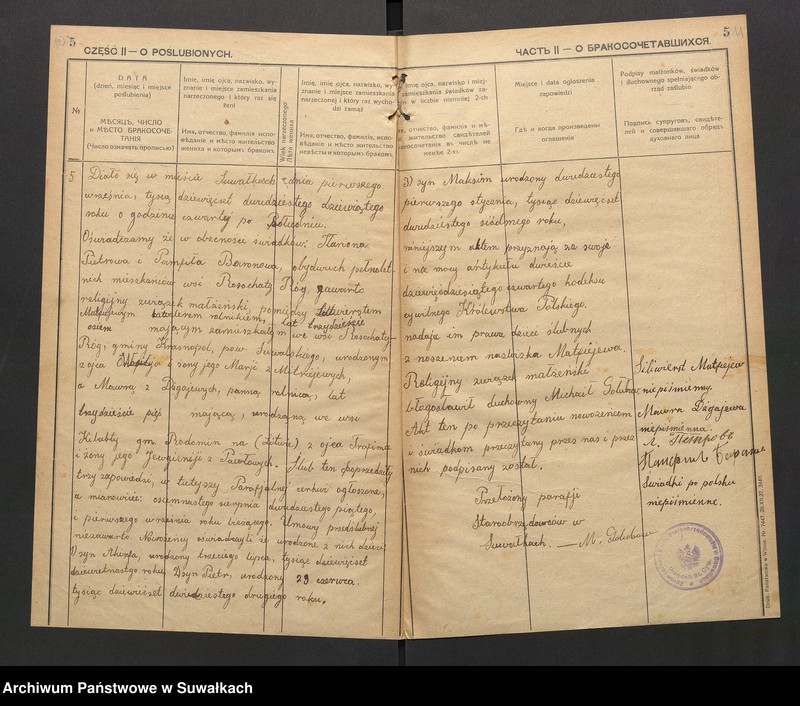 5
CZĘŚĆ II — O POŚLUBIONYCH.
№
DATA
(dzień, miesiąc i miejsce
poślubienia)
МѢСЯЦЪ, ЧИСЛО
и МѢСТО БРАКОСОЧЕ-
ТАНІЯ
(Число означать прописью)
Imię, imię ojca, nazwisko, wy-
znanie i miejsce zamieszkania
narzeczonego i który raz się
żeni
Имя, отчество, фамилія, испо-
вѣданіе и мѣсто жительство
жениха и которымъ бракомъ
Wiek narzeczonego
Лѣта жениха
Imię, imię ojca, nazwisko, wy-
znanie i miejsce zamieszkania
narzeczonej i który raz wycho-
dzi zamąż
Имя, отчество, фамилія, испо-
вѣданіе и мѣсто жительство
невѣсты и которымъ бракомъ
5
Działo się w mieście Suwałkach dnia pierwszego
września, tysiąc dziewięćset dwudziestego dziewiątego
roku o godzinie czwartej po południu.
Oświadczamy że w obecności świadków: Ilariona
Pietrowa i Pamfiła Baranowa, obydwuch pełnolet-
nich mieszkańców wsi Rosochaty Róg zawarto
religijny związek małżeński, pomiędzy
Matpiejewym kawalerem rolnikiem, lat trzydzieście
osiem mającym zamieszkałym we wsi Rosochaty-
Róg, gminy Krasnopol, pow. Suwalskiego, urodzonym
z ojca i żony jego Marji z Matwiejewych,
a Mawrą z Digajewych, panną rolniczą, lat
trzydzieście pięć mającą, urodzoną we wsi
Kiłabty gm. Radomin na (Litwie) z ojca Trofima
i żony jego Jewgienji z Pawłowych. Ślub ten poprzedziły
trzy zapowiedzi, w tutejszej Parafjalnej cerkwi ogłoszone,
a mianowicie: osiemnastego sierpnia dwudziestego piątego,
i pierwszego września roku bieżącego. Umowy przedślubnej
niezawarto. Nowożeńcy oświadczyli że urodzone z nich dzieci:
1) syn urodzony trzeciego lipca, tysiąc dziewięćset
dziewiętnastego roku, 2) syn Piotr, urodzony 29 czerwca.
tysiąc dziewięćset dwudziestego drugiego roku.
5
ЧАСТЬ II — О БРАКОСОЧЕТАВШИХСЯ.
imię ojca, nazwisko i miej-
zamieszkania świadków za-
w liczbie niemniej 2-ch
отчество, фамилія и мѣ-
жительство свидѣтелей
бракосочетанія въ числѣ не
менѣе 2-хъ
Miejsce i data ogłoszenia
zapowiedzi
Гдѣ и когда произведены
оглашенія
Podpisy małżonków, świadków
i duchownego spełniającego ob-
rząd zaślubin
Подпись супруговъ, свидѣте-
лей и совершавшаго обрядъ
духовнаго лица
3) syn Maksim urodzony dwudziestego
pierwszego stycznia, tysiąc dziewięćset
dwudziestego siódmego roku,
niniejszym aktem przyznają za swoje
i na mocy artykułu dwieście
dziewięćdziesiątego czwartego kodeksu
cywilnego Królewstwa Polskiego.
nadają im prawa dzieci ślubnych
z noszeniem nazwiska Matpiejewa.
Religijny związek małżeński
błogosławił duchowny Michaił Gołubow,
Akt ten po przeczytaniu nowożeńcom
i świadkom przeczytany przez nas i przez
nich podpisany został.
Przełożony parafji
Staroobrzędowców w
Suwałkach. — M.
Siliwierst Matpiejew
niepiśmienny.
Mawra Digajewa
niepiśmienna.
Л. Петровъ
Памфилъ
Świadki po polsku
niepiśmienne.
Archiwum Państwowe w Suwałkach